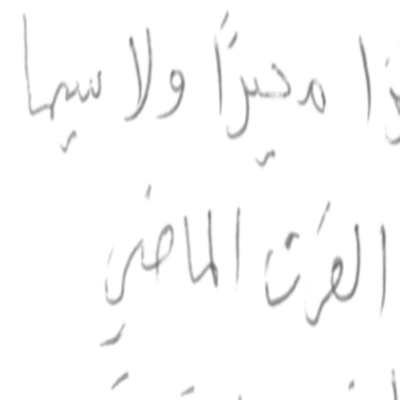 محيرًا ولا سيما
القرن الماضي